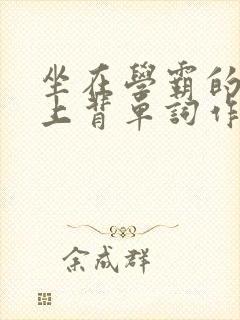 坐在學霸的
上背單詞作
余成群